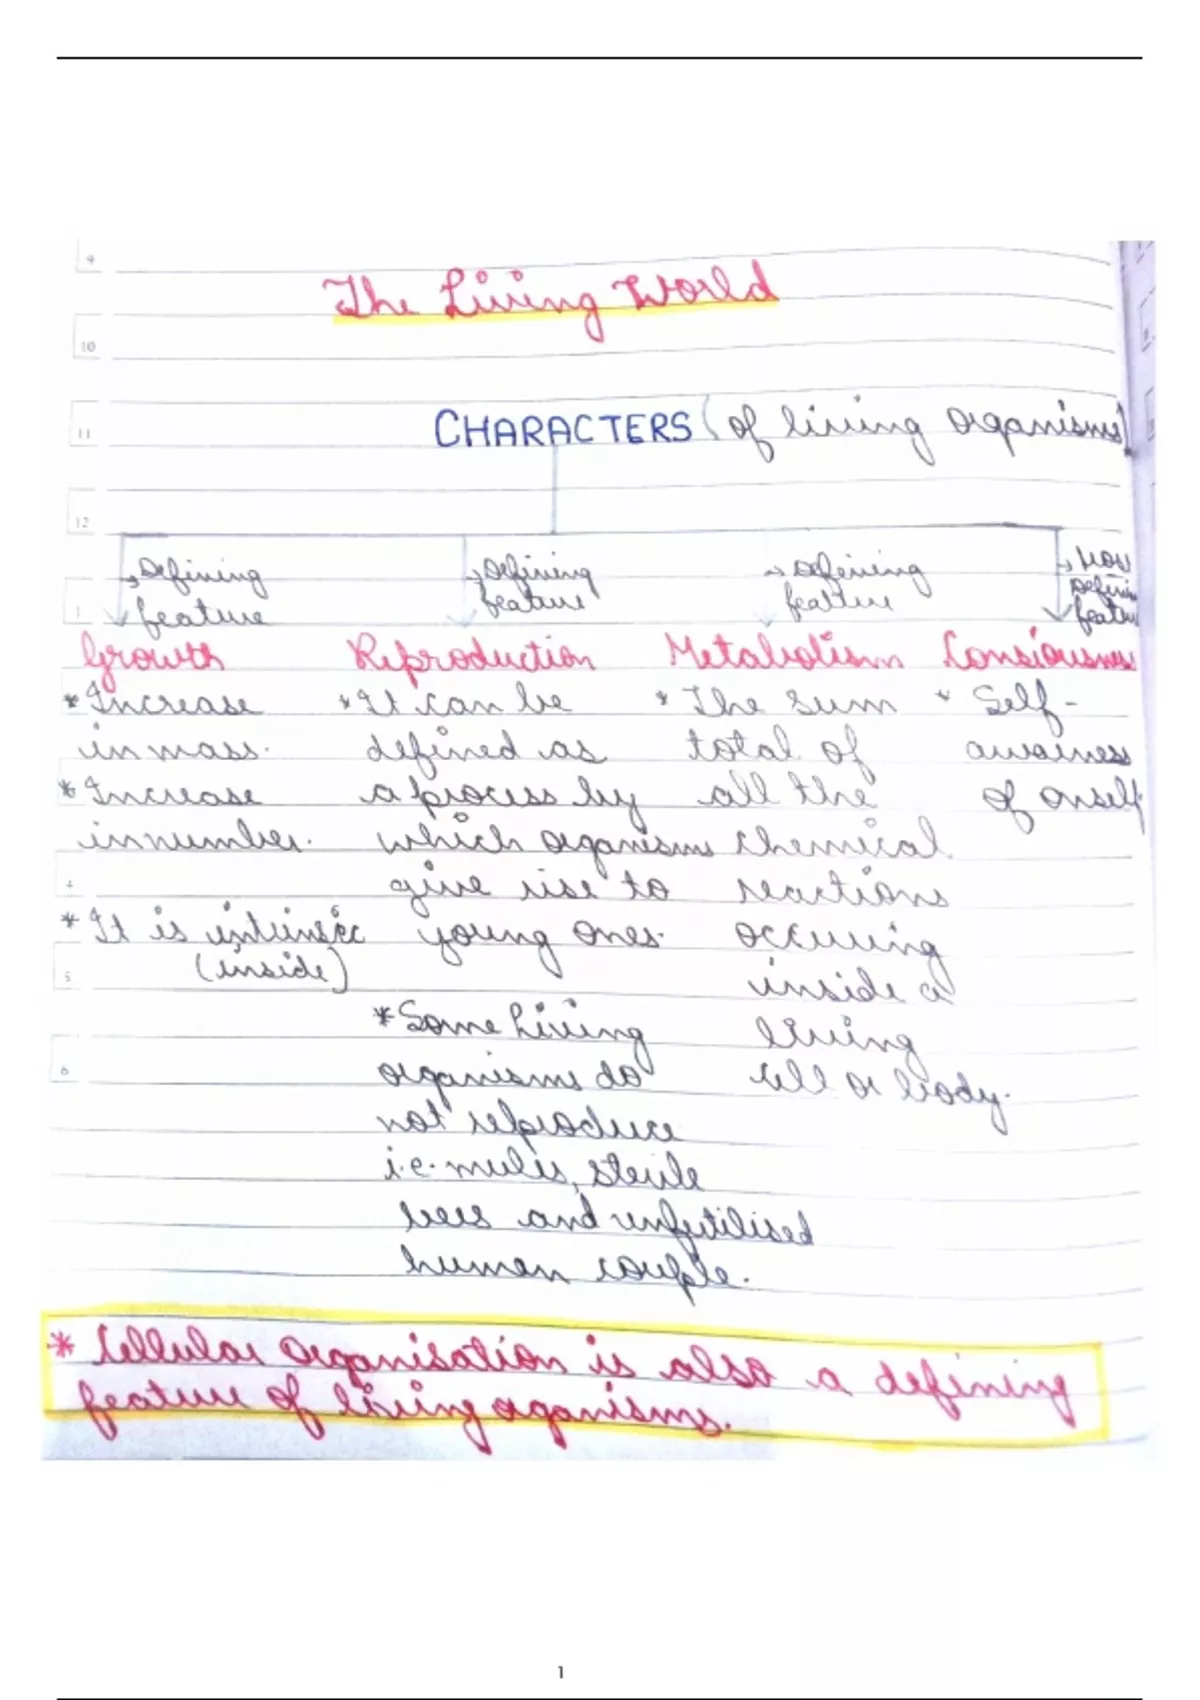 The Living World
CHARACTERS (of living organisms)
→ Defining
feature
→ Defining
feature
→ Defining
feature
→ Non
Defining
feature
Growth
* Increase
in mass.
* Increase
in number.
* It is intrinsic
(inside)
Reproduction
* It can be
defined as
a process by
which organisms
give rise to
young ones.
* Some living
organisms do
not reproduce
i.e. mules, sterile
bees and unfertilised
human couple.
Metabolism
* The sum
total of
all the
chemical
reactions
occuring
inside a
living
cell or body.
Consiousness
* Self-
awarness
of onself.
* Cellular organisation is also a defining
feature of living organisms.
1